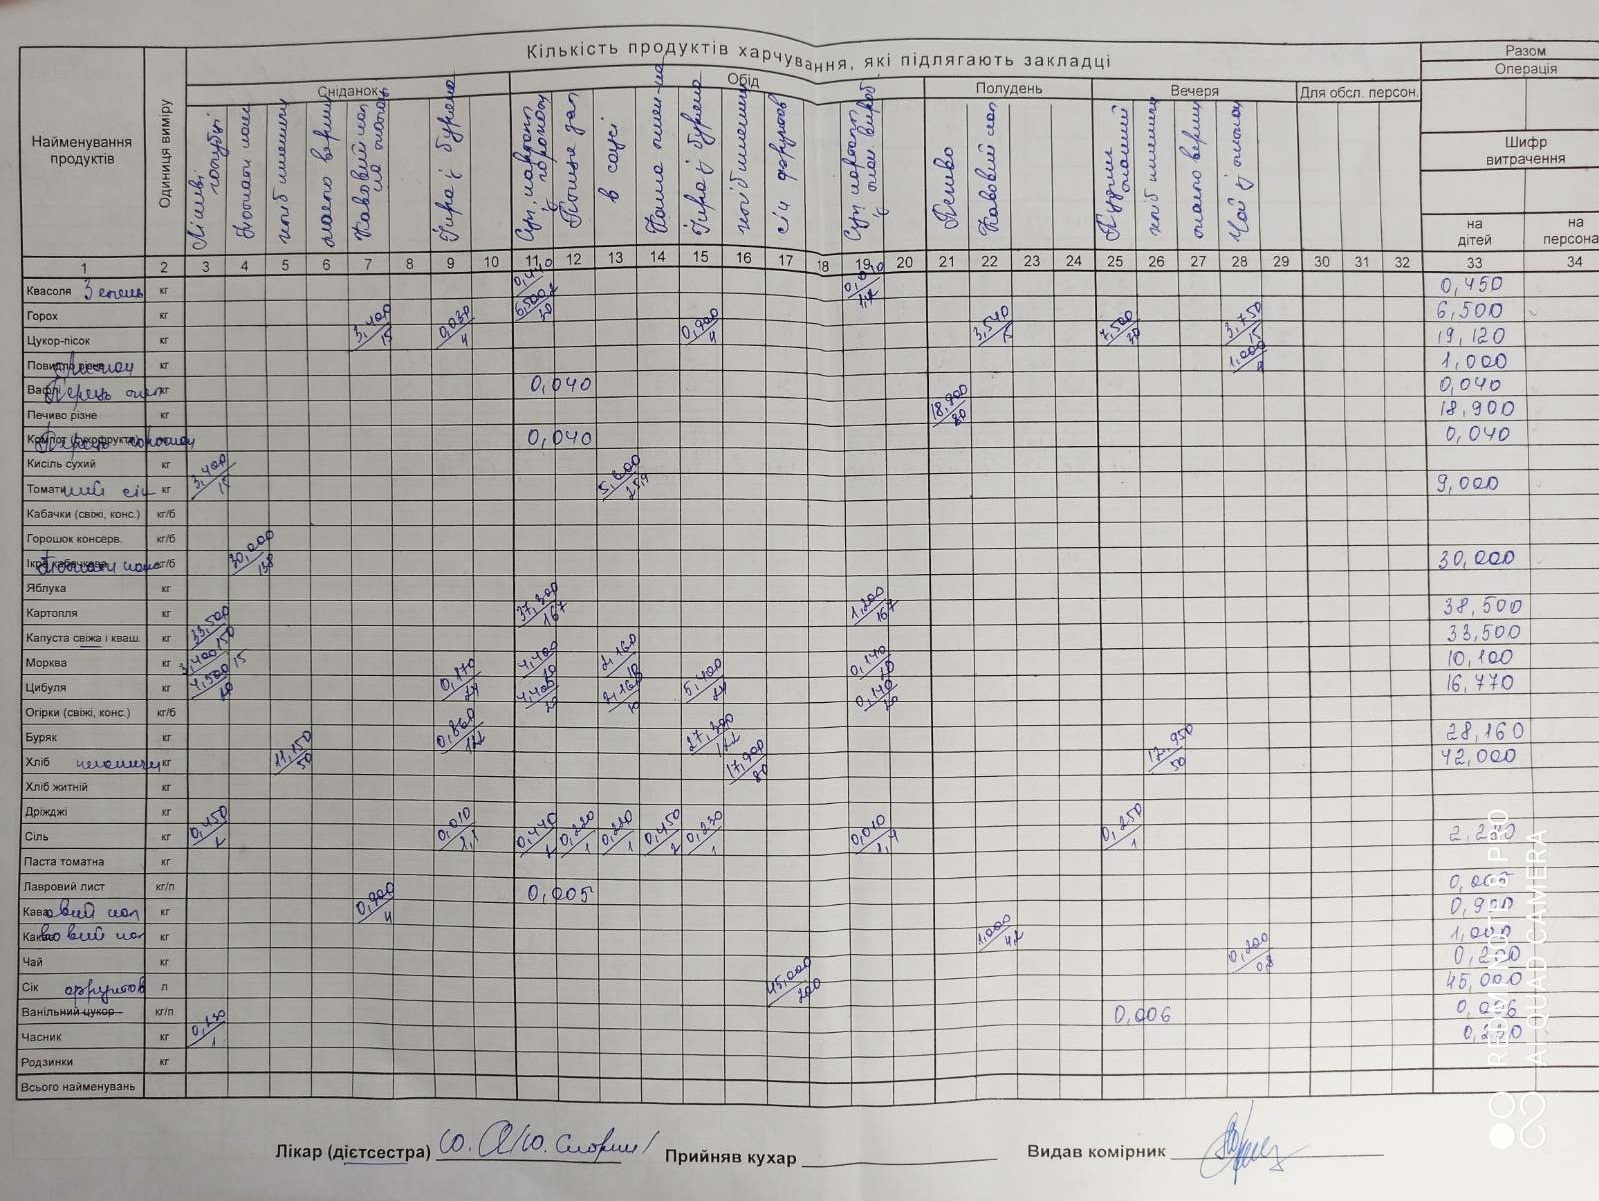 Кількість продуктів харчування, які підлягають закладці
Разом
Операція
Шифр витрачення
на дітей
на персонал
Найменування продуктів
Одиниця виміру
Сніданок
Обід
Полудень
Вечеря
Для обсл. персон.
Ліниві голубці
хліб пшенич
масло верш
Кавовий нап
Ікра з буряка
Суп картопл з горохом
в соусі
Каша пшен-на
Ікра з буряка
хліб пшенич
сік фруктов
Печиво
Какаовий нап
хліб пшенич
масло верш
Чай з
1 2 3 4 5 6 7 8 9 10 11 12 13 14 15 16 17 18 19 20 21 22 23 24 25 26 27 28 29 30 31 32 33 34
Квасоля кг 0,450
Горох кг 6,500 6,500
Цукор-пісок кг 3,400/15 0,030/4 0,900/4 3,540/15 7,500/30 3,750/15 19,120
Повидло різне кг 1,000/4 1,000
Вафлі Перець кг 0,040 0,040
Печиво різне кг 18,900/80 18,900
Компот (сухофрукти) Перець кг 0,040 0,040
Кисіль сухий кг
Томатний сік кг 3,400/15 5,600 9,000
Кабачки (свіжі, конс.) кг/б
Горошок консерв. кг/б
Ікра кабачкова кг/б 30,000 30,000
Яблука кг
Картопля кг 37,300/167 1,200/167 38,500
Капуста свіжа і кваш. кг 33,500/150 33,500
Морква кг 3,400/15 4,400/20 2,160/10 0,140/20 10,100
Цибуля кг 4,500/20 0,170/24 4,400/20 2,160/10 5,400/24 0,140/20 16,770
Огірки (свіжі, конс.) кг/б
Буряк кг 0,860/122 27,300/122 28,160
Хліб пшеничн кг 11,150/50 17,900/80 12,950/50 42,000
Хліб житній кг
Дріжджі кг
Сіль кг 0,450/2 0,010 0,440/2 0,220/1 0,220/1 0,450/2 0,230/1 0,010 0,250/1
Паста томатна кг
Лавровий лист кг/п 0,005 0,005
Кавовий нап кг 0,900/4 0,900
Какаовий нап кг 1,000/4,2 1,000
Чай кг 0,200/0,8 0,200
Сік фруктов л 45,000/200 45,000
Ванільний цукор кг/п 0,006 0,006
Часник кг 0,230/1 0,230
Родзинки кг
Всього найменувань
Лікар (дієтсестра)
Прийняв кухар
Видав комірник
REDMI NOTE 8 PRO
AI QUAD CAMERA